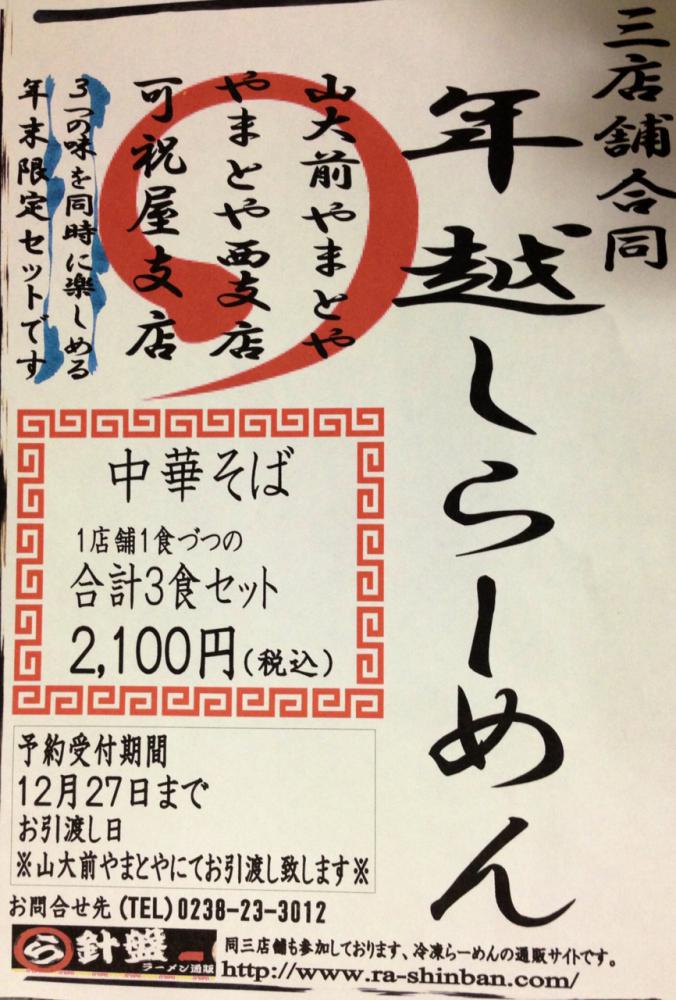 三店舗合同
年越しらーめん
山大前やまとや
やまとや西支店
可祝屋支店
3つの味を同時に楽しめる
年末限定セットです
中華そば
1店舗1食づつの
合計3食セット
2,100円(税込)
予約受付期間
12月27日まで
お引渡し日
※山大前やまとやにてお引渡し致します※
お問合せ先(TEL)0238-23-3012
ら針盤
ラーメン通販
同三店舗も参加しております、冷凍らーめんの通販サイトです。
http://www.ra-shinban.com/